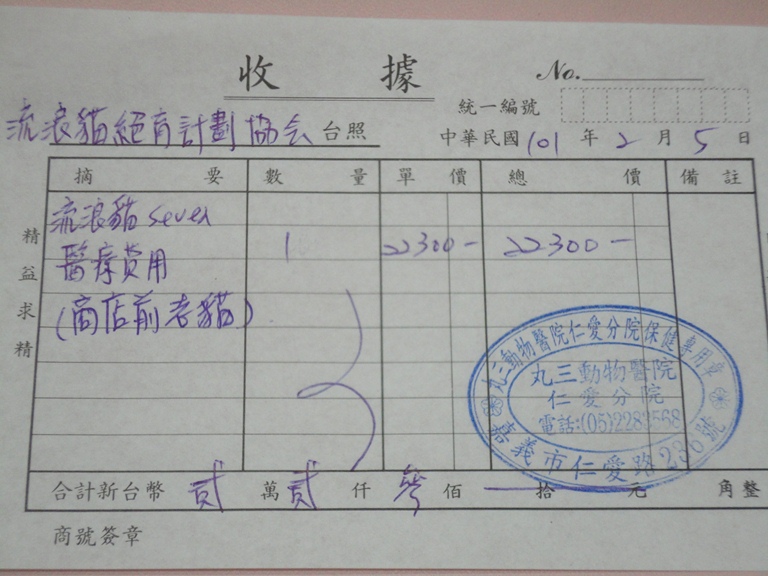 收 據
No.
統一編號
流浪貓絕育計劃協会 台照
中華民國 101 年 2 月 5 日
摘 要 數 量 單 價 總 價 備 註
流浪貓 seven
醫療費用 1 22300- 22300-
(商店前老貓)
精益求精
丸三動物醫院仁愛分院保健專用章
丸三動物醫院
仁愛分院
嘉義市仁愛路236號
合計新台幣 貳 萬 貳 仟 參 佰 拾 元 角整
商號簽章